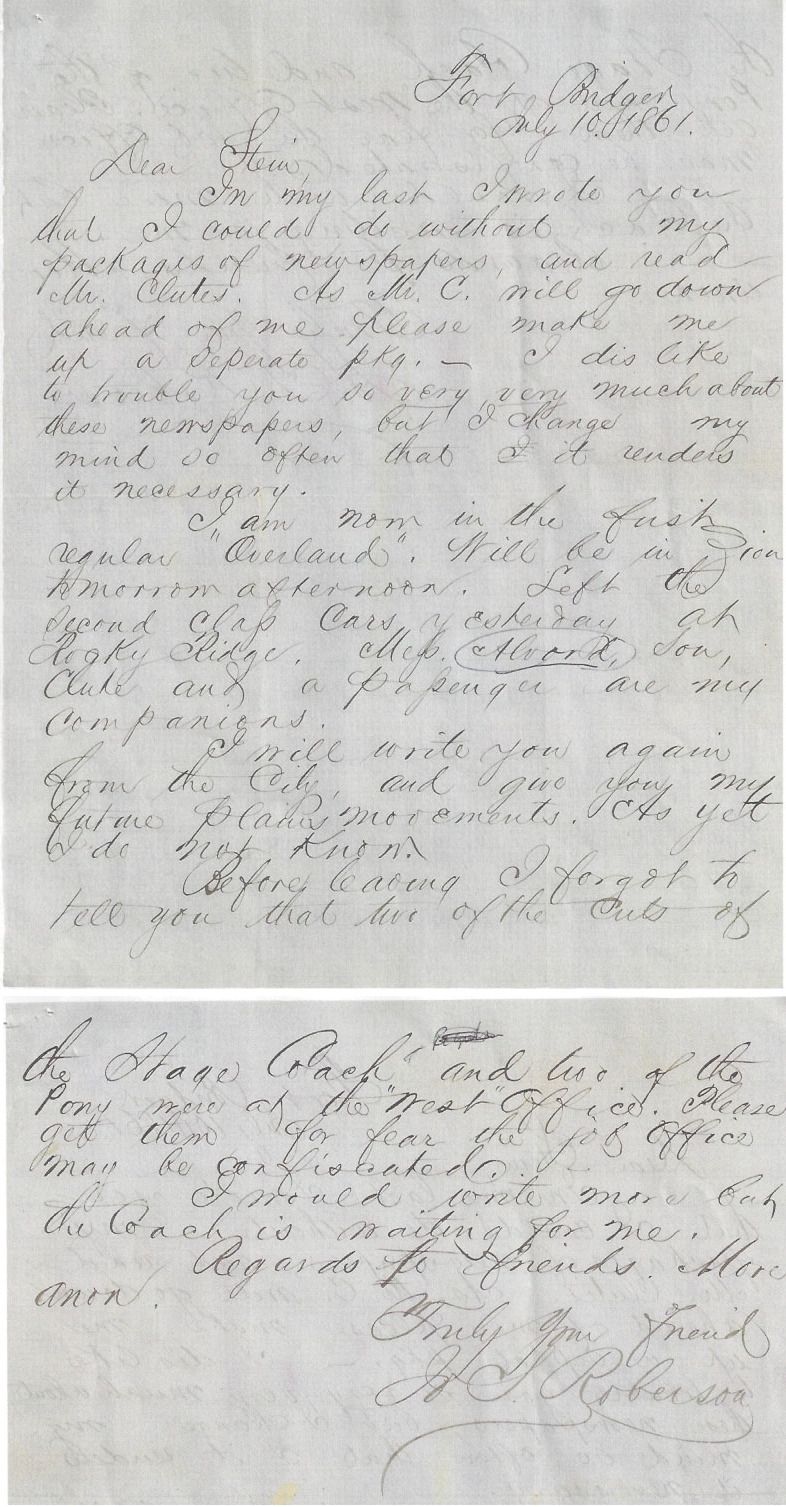 Fort Bridger
July 10. 1861.
Dear Stein,
In my last I wrote you
that I could do without my
packages of newspapers, and read
Mr. Clutes. As Mr. C. will go down
ahead of me please make me
up a seperate pkg. — I dis like
to trouble you so very, very much about
these newspapers, but I change my
mind so often that I it renders
it necessary.
I am now in the first
regular "Overland". Will be in Zion
tomorrow afternoon. Left the
second class Cars yesterday at
Rocky Ridge. Mess. Alvord, Son,
Clute and a passenger are my
companions.
I will write you again
from the City, and give you my
future plans, movements. As yet
I do not know.
Before leaving I forgot to
tell you that two of the cuts of
the Stage Coach" and two of the
Pony were at the "West" Office. Please
get them for fear the job office
may be confiscated. —
I would write more but
the Coach is waiting for me.
Regards to friends. More
anon.
Truly Your friend
Jo S. Roberson